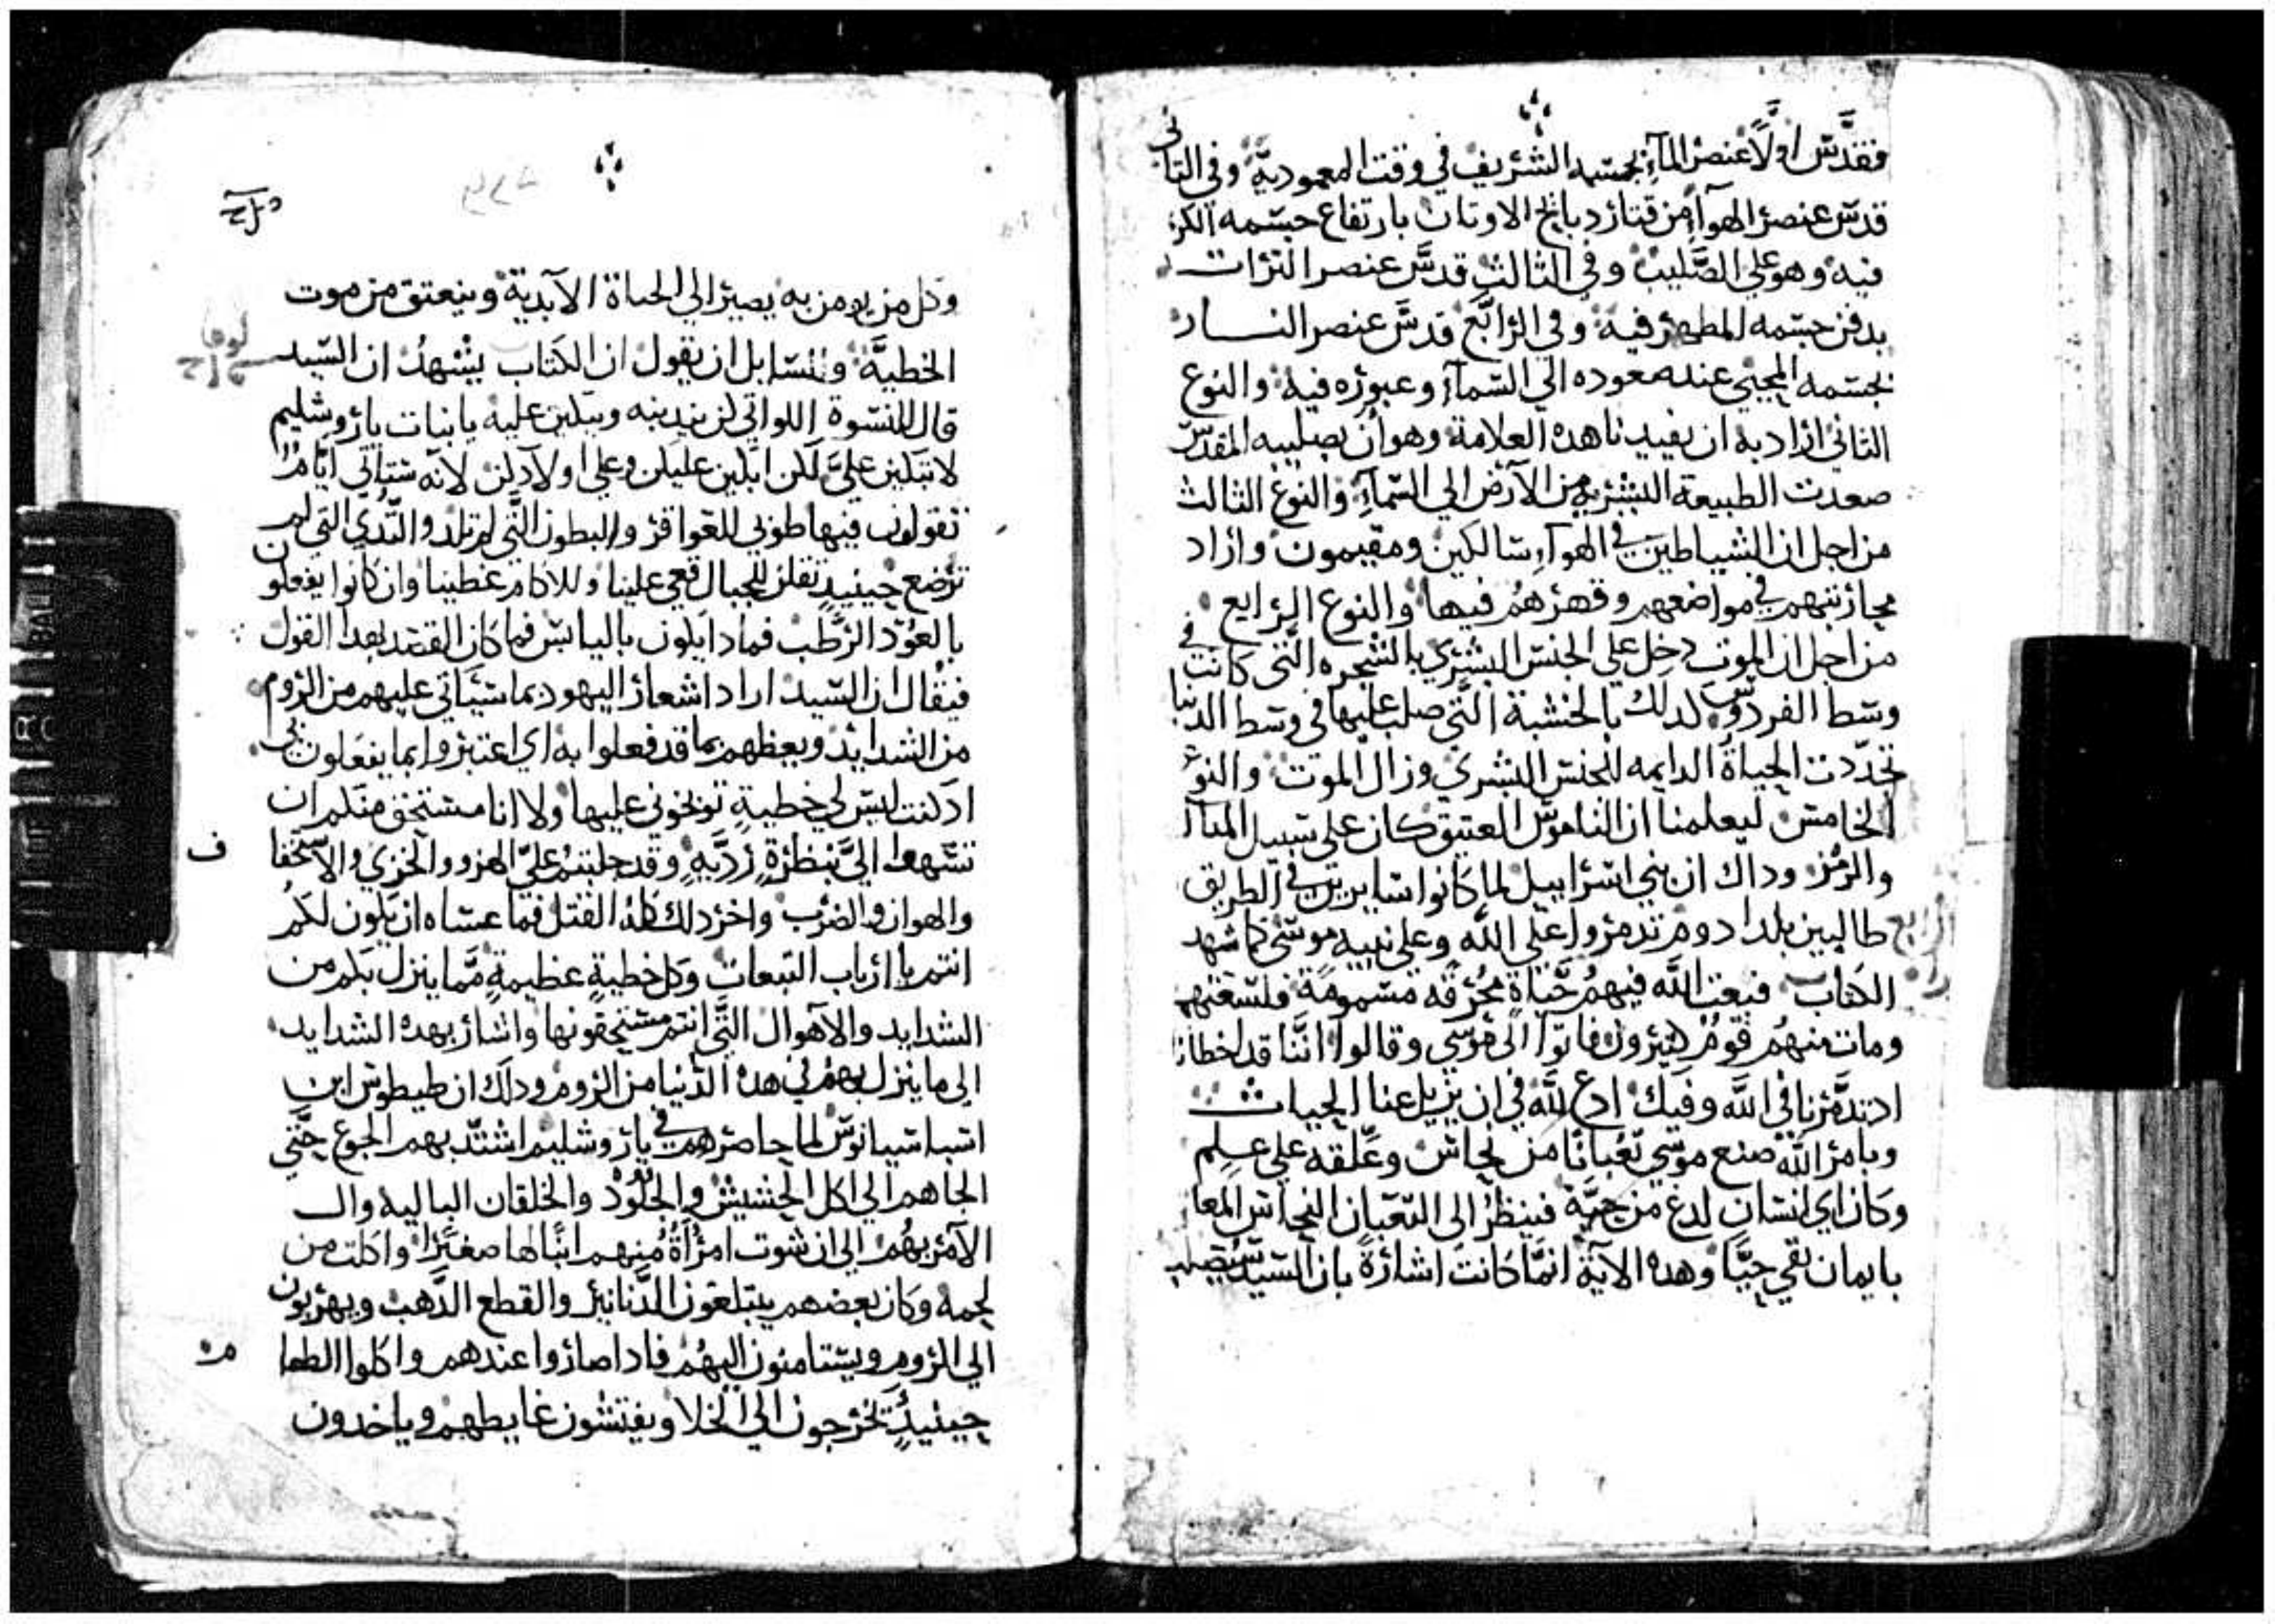 فقدَّس اوَّلاً عنصر المآءِ بجسمه الشريف في وقت المعموديَّة وفي التاني
قدس عنصر الهوآءِ من قتار دبايح الاوتان بارتفاع جسمه الكر
فيه وهو علي الصَّليب وفي الثالث قدسَّ عنصر التراب
بدفن جسمه المطهر فيه وفي الرابَّع قدسَّ عنصر النار
بجسمه المحيي عند صعوده الي السَّمآءِ وعبوره فيه والنوع
التاني اراد به ان يفيدنا هده العلامة وهو ان بصليبه المقدس
صعدت الطبيعة البشريه من الآرض الي السَّمآءِ والنوع الثالث
من اجل ان الشياطين في الهوآءِ سالكين ومقيمون واراد
محاربتهم في مواضعهم وقهرهُم فيها والنوع الرابع
من اجل ان الموت دخل علي الجنس البشري بالشجره التَّى كانت في
وسط الفردوس لدلك بالخشبة التَّي صلب عليها في وسط الدنيا
تجدّدت الحياة الدايمه للجنس البشري وزال الموت والنوع
الخامس ليعلمنا ان الناموس العتيق كان علي سبيل المتال
والرمز وداك ان بني اسراييل لما كانوا سايرين في الطريق
طالبين بلد ادوم تدمروا علي اللّه وعلي نبيه موسَي كما شهد
الكتاب فبعت اللَّه فيهمُ حيَّاة محُرقه مسمومَة فلسعتهم
ومات منهمُ قومٌ كتيرون فاتوا الي موسي وقالوا انَّنا قد اخطانا
ادتدمَّرنا في اللَّه وفيك ادع للَّه في ان يزيل عنا الحيات
وبامر اللَّه صنع موسي تعُبانًا من نحاس وعَّلقه علي علم
وكان اي انسان لدغ من حيَّة فينظرُ الي التعَّبان النحاس المعار
بايمان بقي حيًّا وهده الآية انمَّا كانت اشارةً بان السَّيد سُيصلب
وكل من يومن به يصير الي الحياة الآبدية وينعتق من موت
الخطيَّة ولسايل ان يقول ان الكتاب يشهدُ ان السَّيد
قال للنسوة اللواتي كن يندبنه ويبكين عليه يابنات ياروشليم
لاتبكين عليَّ لكن ابكين عليكن وعلي اولادكن لآنه ستاتي ايَّامُُ
تقولون فيها طوبي للعواقر والبطون التَّي لم تلد والتَّدي التي لم
ترضع حينيدٍ تقلن للجبال قعي علينا وللاكام غطينا وان كانوا يفعلون
بالعوُد الرطَّب فمادا يكون باليابس فما كان القصد بهدا القول
فيقُال ان السَّيد اراد اشعار اليهود بما سَيَاتي عليهم من الروم
من الشدايد ويعظهم بما قد فعلوا به اي اعتبروا بما يفعلون بي
ادكنت ليس لي خطيةٍ توبخوني عليها ولا انا مستحق منكم ان
تنسهوا اليَّ بنظرةٍ رَدَّيهٍ وقد جلبتمُ عليَّ الهزو والخزي والآستخفا
والهوان والضرب واخر دلك كلهُ القتل فما عساه ان يكون لكُم
انتم يا ارباب التبعات وكل خطيةٍ عظيمةٍ ممَّا ينزل بكم من
الشدايد والآهوال التَّي انتم مستحقونها واشار بهده الشدايد
الي ما ينزل بهمُ في هده الدَّنيا من الروم ودلك ان طيطوس ابن
اسباسيانوسّ لما حاصرهم في ياروشليم اشتدّ بهم الجوع حتَّي
الجاهم الي اكل الحشيش والجلوُد والخلقان الباليه وال
الآمر بهُم الي ان شوت امراةٌ منهم ابنًا لها صغيرًا واكلت من
لحمه وكان بعضهم يبتلعون الدَّنانير والقطع الدَّهب ويهربون
الي الروم ويستامنون اليهُم فادا صاروا عندهم واكلوا الطعا
حينيدٍ يخرجون الي الخلا ويفتشون غايطهم وياخدون